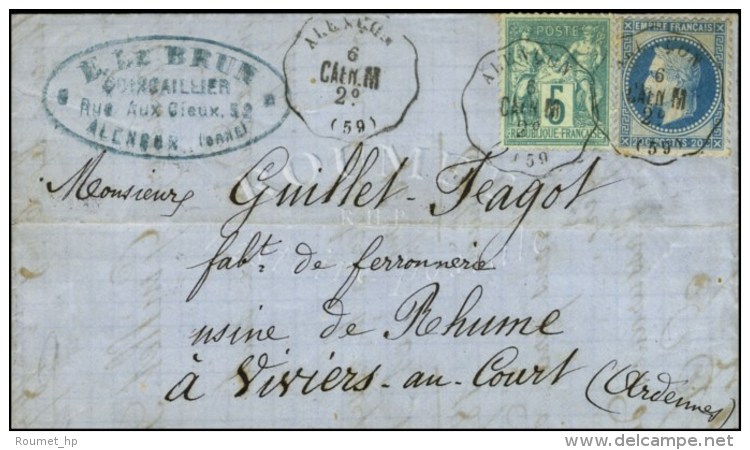 E. LE BRUN
QUINCAILLIER
Rue Aux Cieux. 52
ALENÇON (ORNE)
ALENÇON
6
CAEN.M
2°
(59)
POSTE
5
REPUBLIQUE FRANÇAISE
ALENÇON
6
CAEN.M
2°
(59
EMPIRE FRANÇAIS
6
CAEN M
2°
(59
Monsieur Guillet-Feagot
fabt. de ferronnerie
usine de Rhume
à Viviers-au-Court (Ardennes)
Roumet_hp
www.delcampe.net